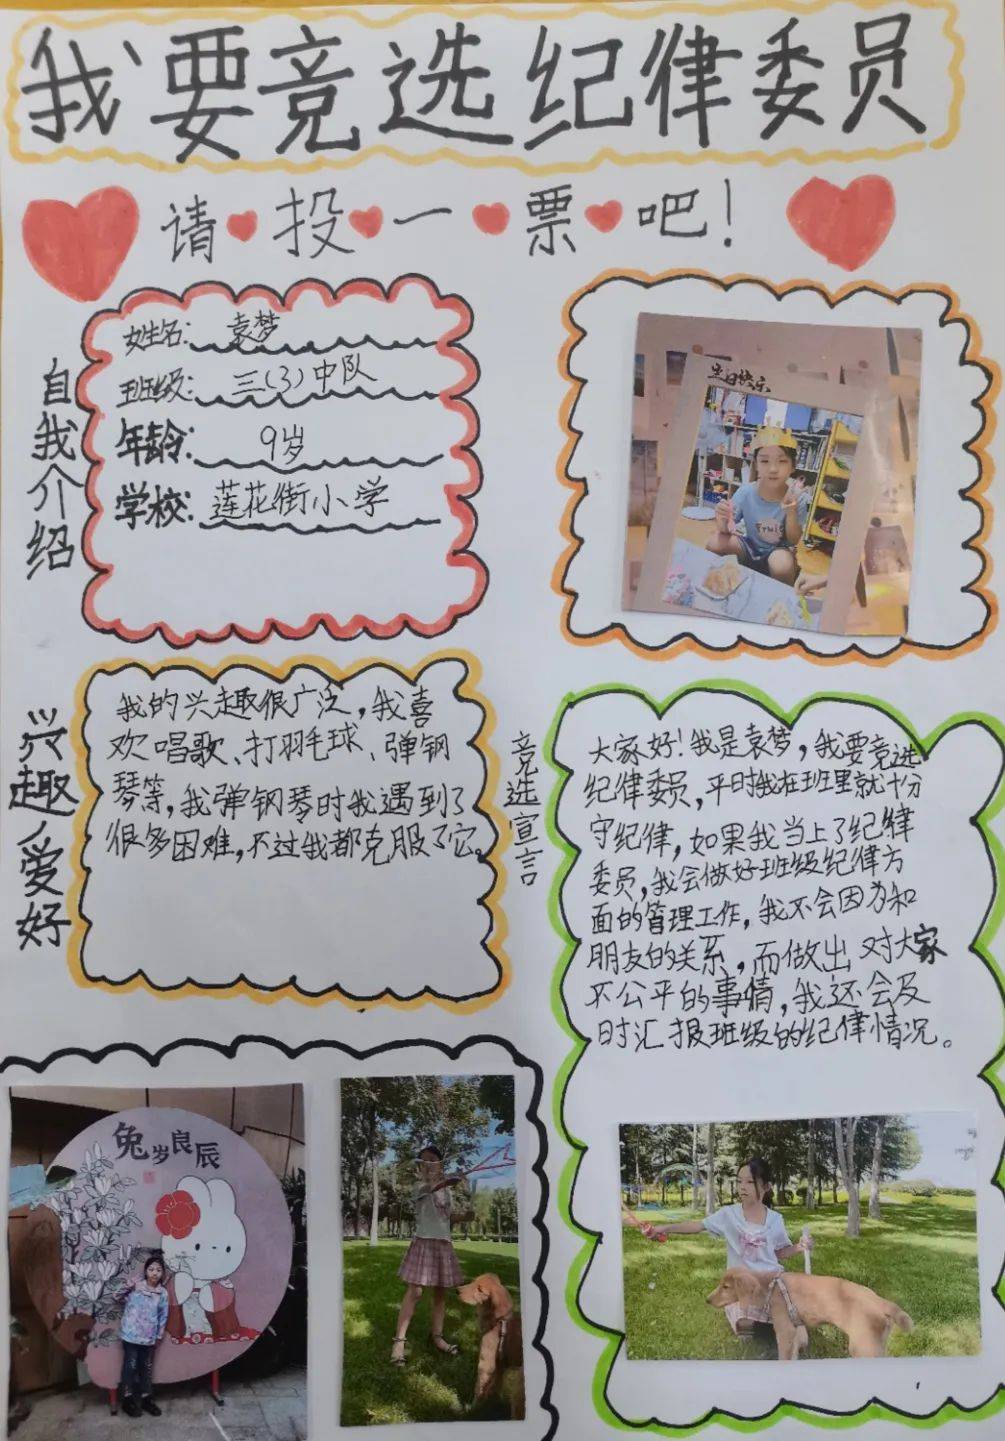 我要竞选纪律委员
请投一票吧！
自我介绍
姓名：袁梦
班级：三（3）中队
年龄：9岁
学校：莲花街小学
生日快乐
兴趣爱好
我的兴趣很广泛，我喜
欢唱歌、打羽毛球、弹钢
琴等，我弹钢琴时我遇到了
很多困难，不过我都克服了它。
竞选宣言
大家好！我是袁梦，我要竞选
纪律委员，平时我在班里就十分
守纪律，如果我当上了纪律
委员，我会做好班级纪律方
面的管理工作，我不会因为和
朋友的关系，而做出对大家
不公平的事情，我还会及
时汇报班级的纪律情况。
兔岁良辰